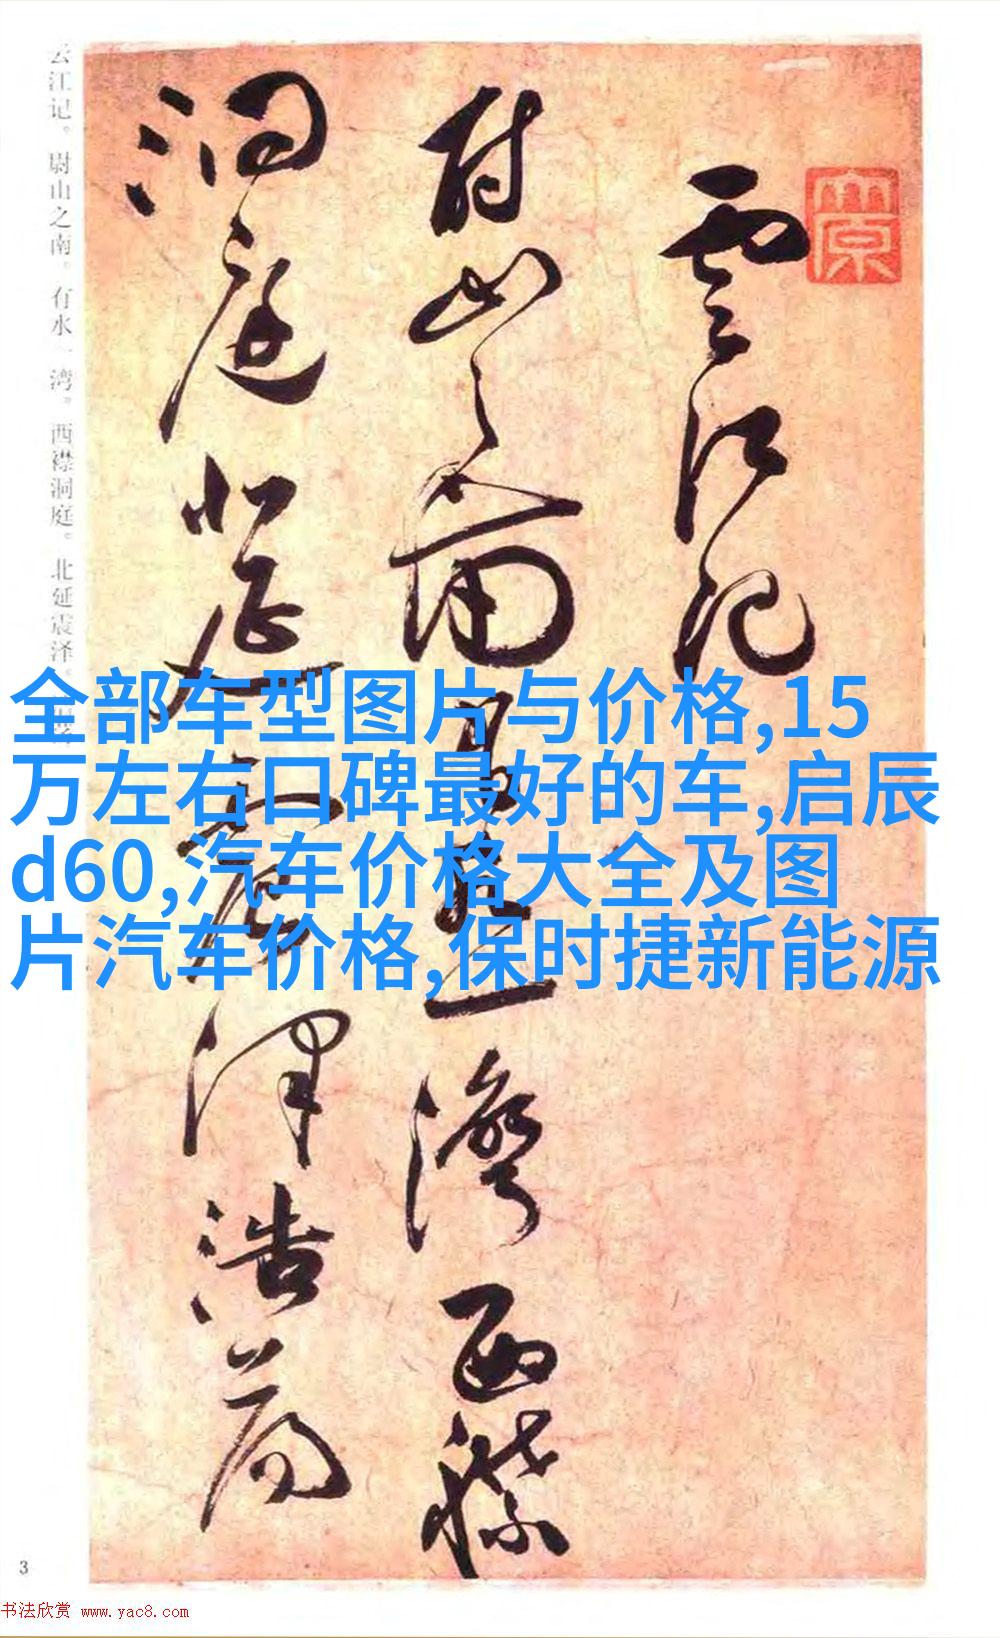 云江记。尉山之南。有水一湾。西襟洞庭。北延震泽。
雲江記
尉山之南有水一灣西襟
洞庭北延震澤浩荡
全部车型图片与价格,15
万左右口碑最好的车,启辰
d60,汽车价格大全及图
片汽车价格,保时捷新能源
3
书法欣赏 www.yac8.com